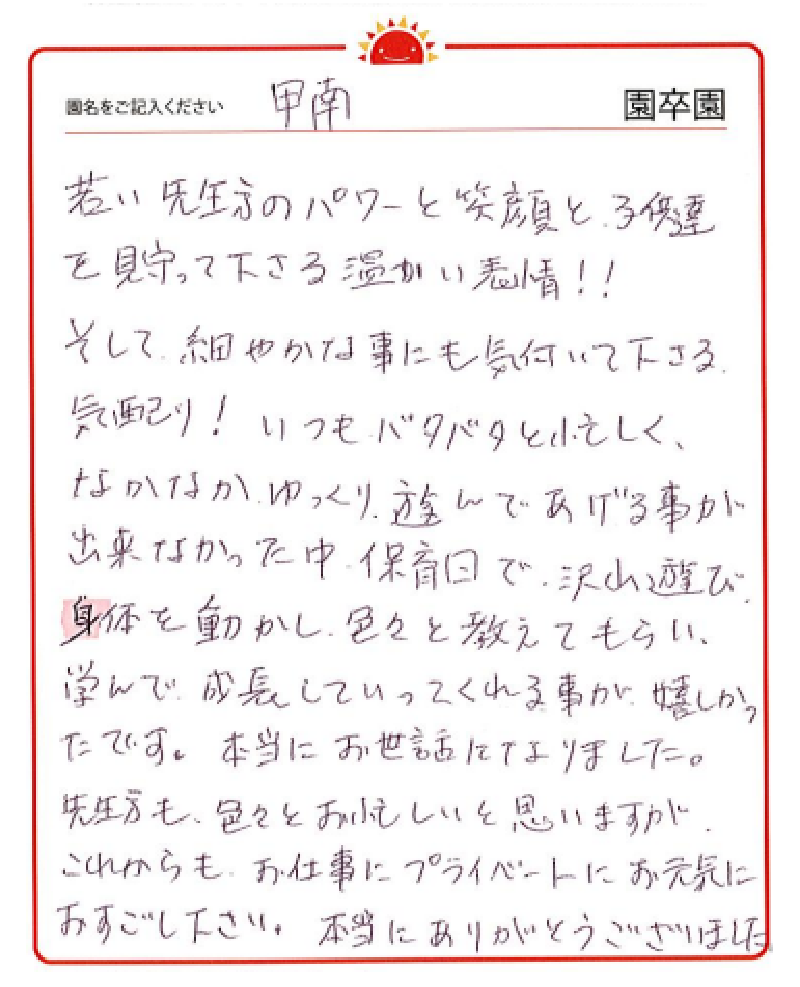 園名をご記入ください 甲南 園卒園
若い先生方のパワーと笑顔と、子供達
を見守って下さる温かい表情!!
そして、細やかな事にも気付いて下さる、
気配り! いつもバタバタと忙しく、
なかなか、ゆっくり、遊んであげる事が
出来なかった中、保育園で、沢山遊び、
身体を動かし、色々と教えてもらい、
学んで、成長していってくれる事が、嬉しかっ
たです。本当にお世話になりました。
先生方も、色々とお忙しいと思いますが、
これからも、お仕事にプライベートにお元気に
おすごし下さい。本当にありがとうございました